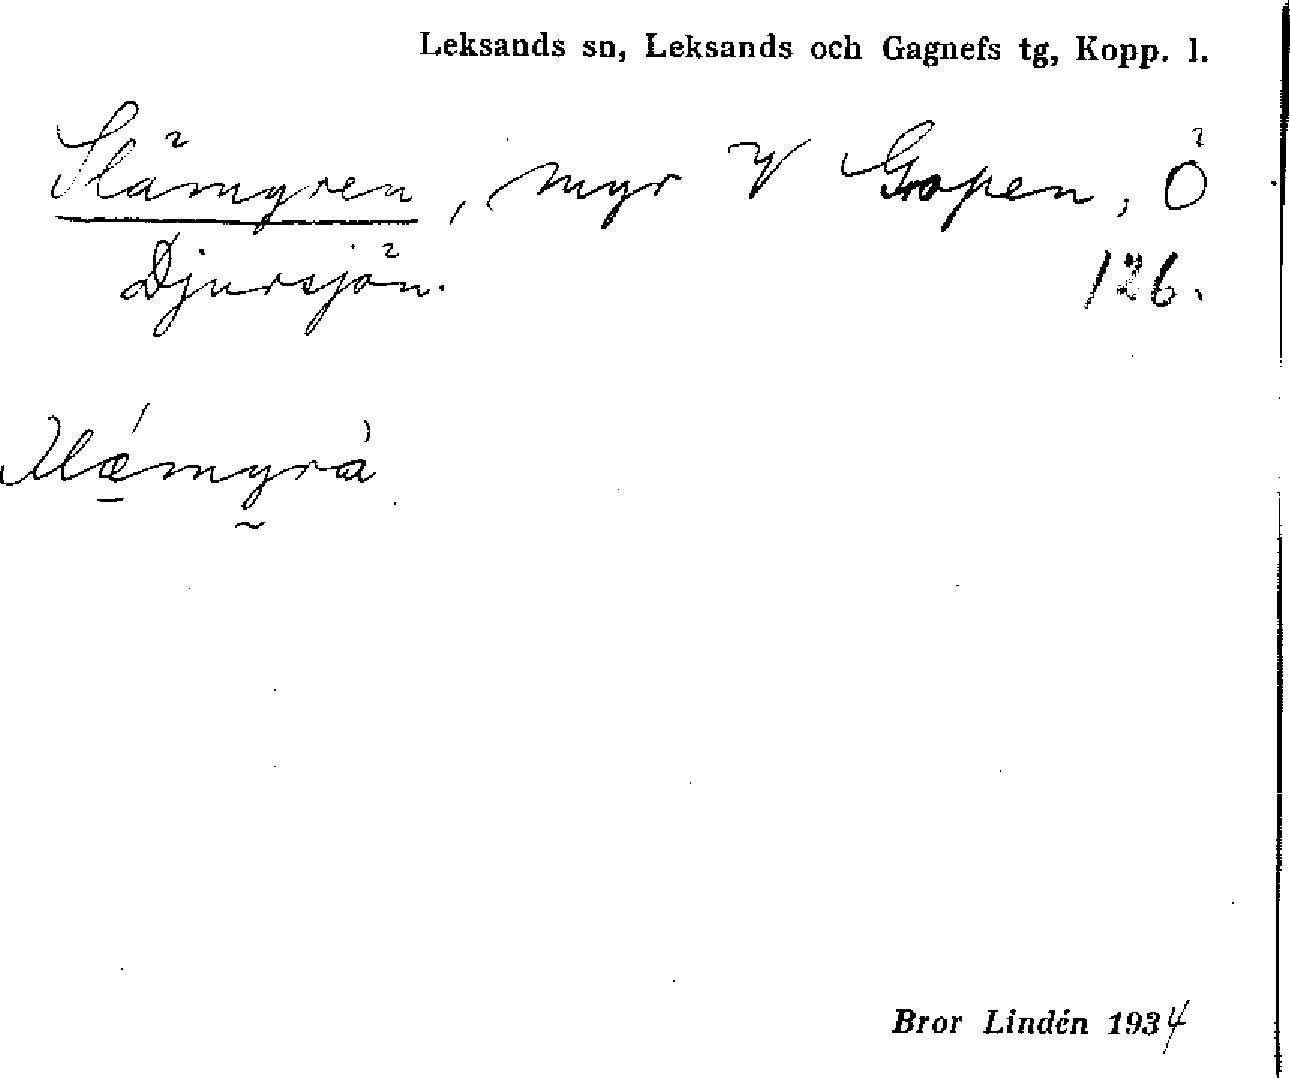 Leksands sn, Leksands och Gagnefs tg, Kopp. l.
Slämyren, myr V Gropen, Ö
Djursjön. 126.
slǽmyrà
Bror Lindén 1934